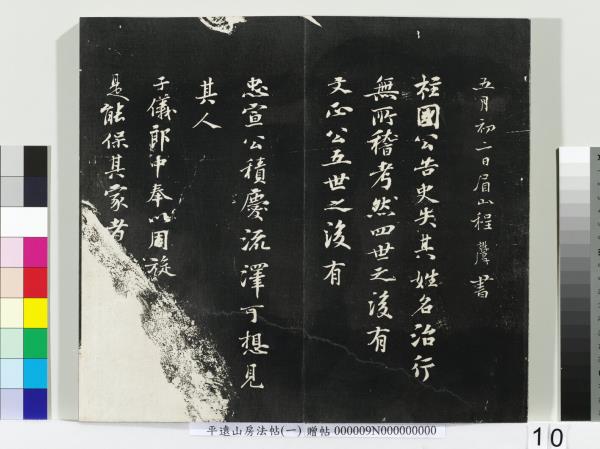 五月初二日眉山程㟽書
柱國公告史失其姓名治行
無所稽考然四世之後有
文正公五世之後有
忠宣公積慶流澤可想見
其人
子儀郎中奉以周旋
是能保其家者
平遠山房法帖(一) 贈帖 000009N000000000
10